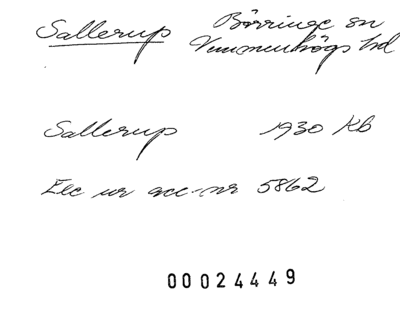 Sallerup Börringe sn
Vemmenhögs hd
Sallerup 1930 Kb
Exc ur acc-nr 5862
00024449